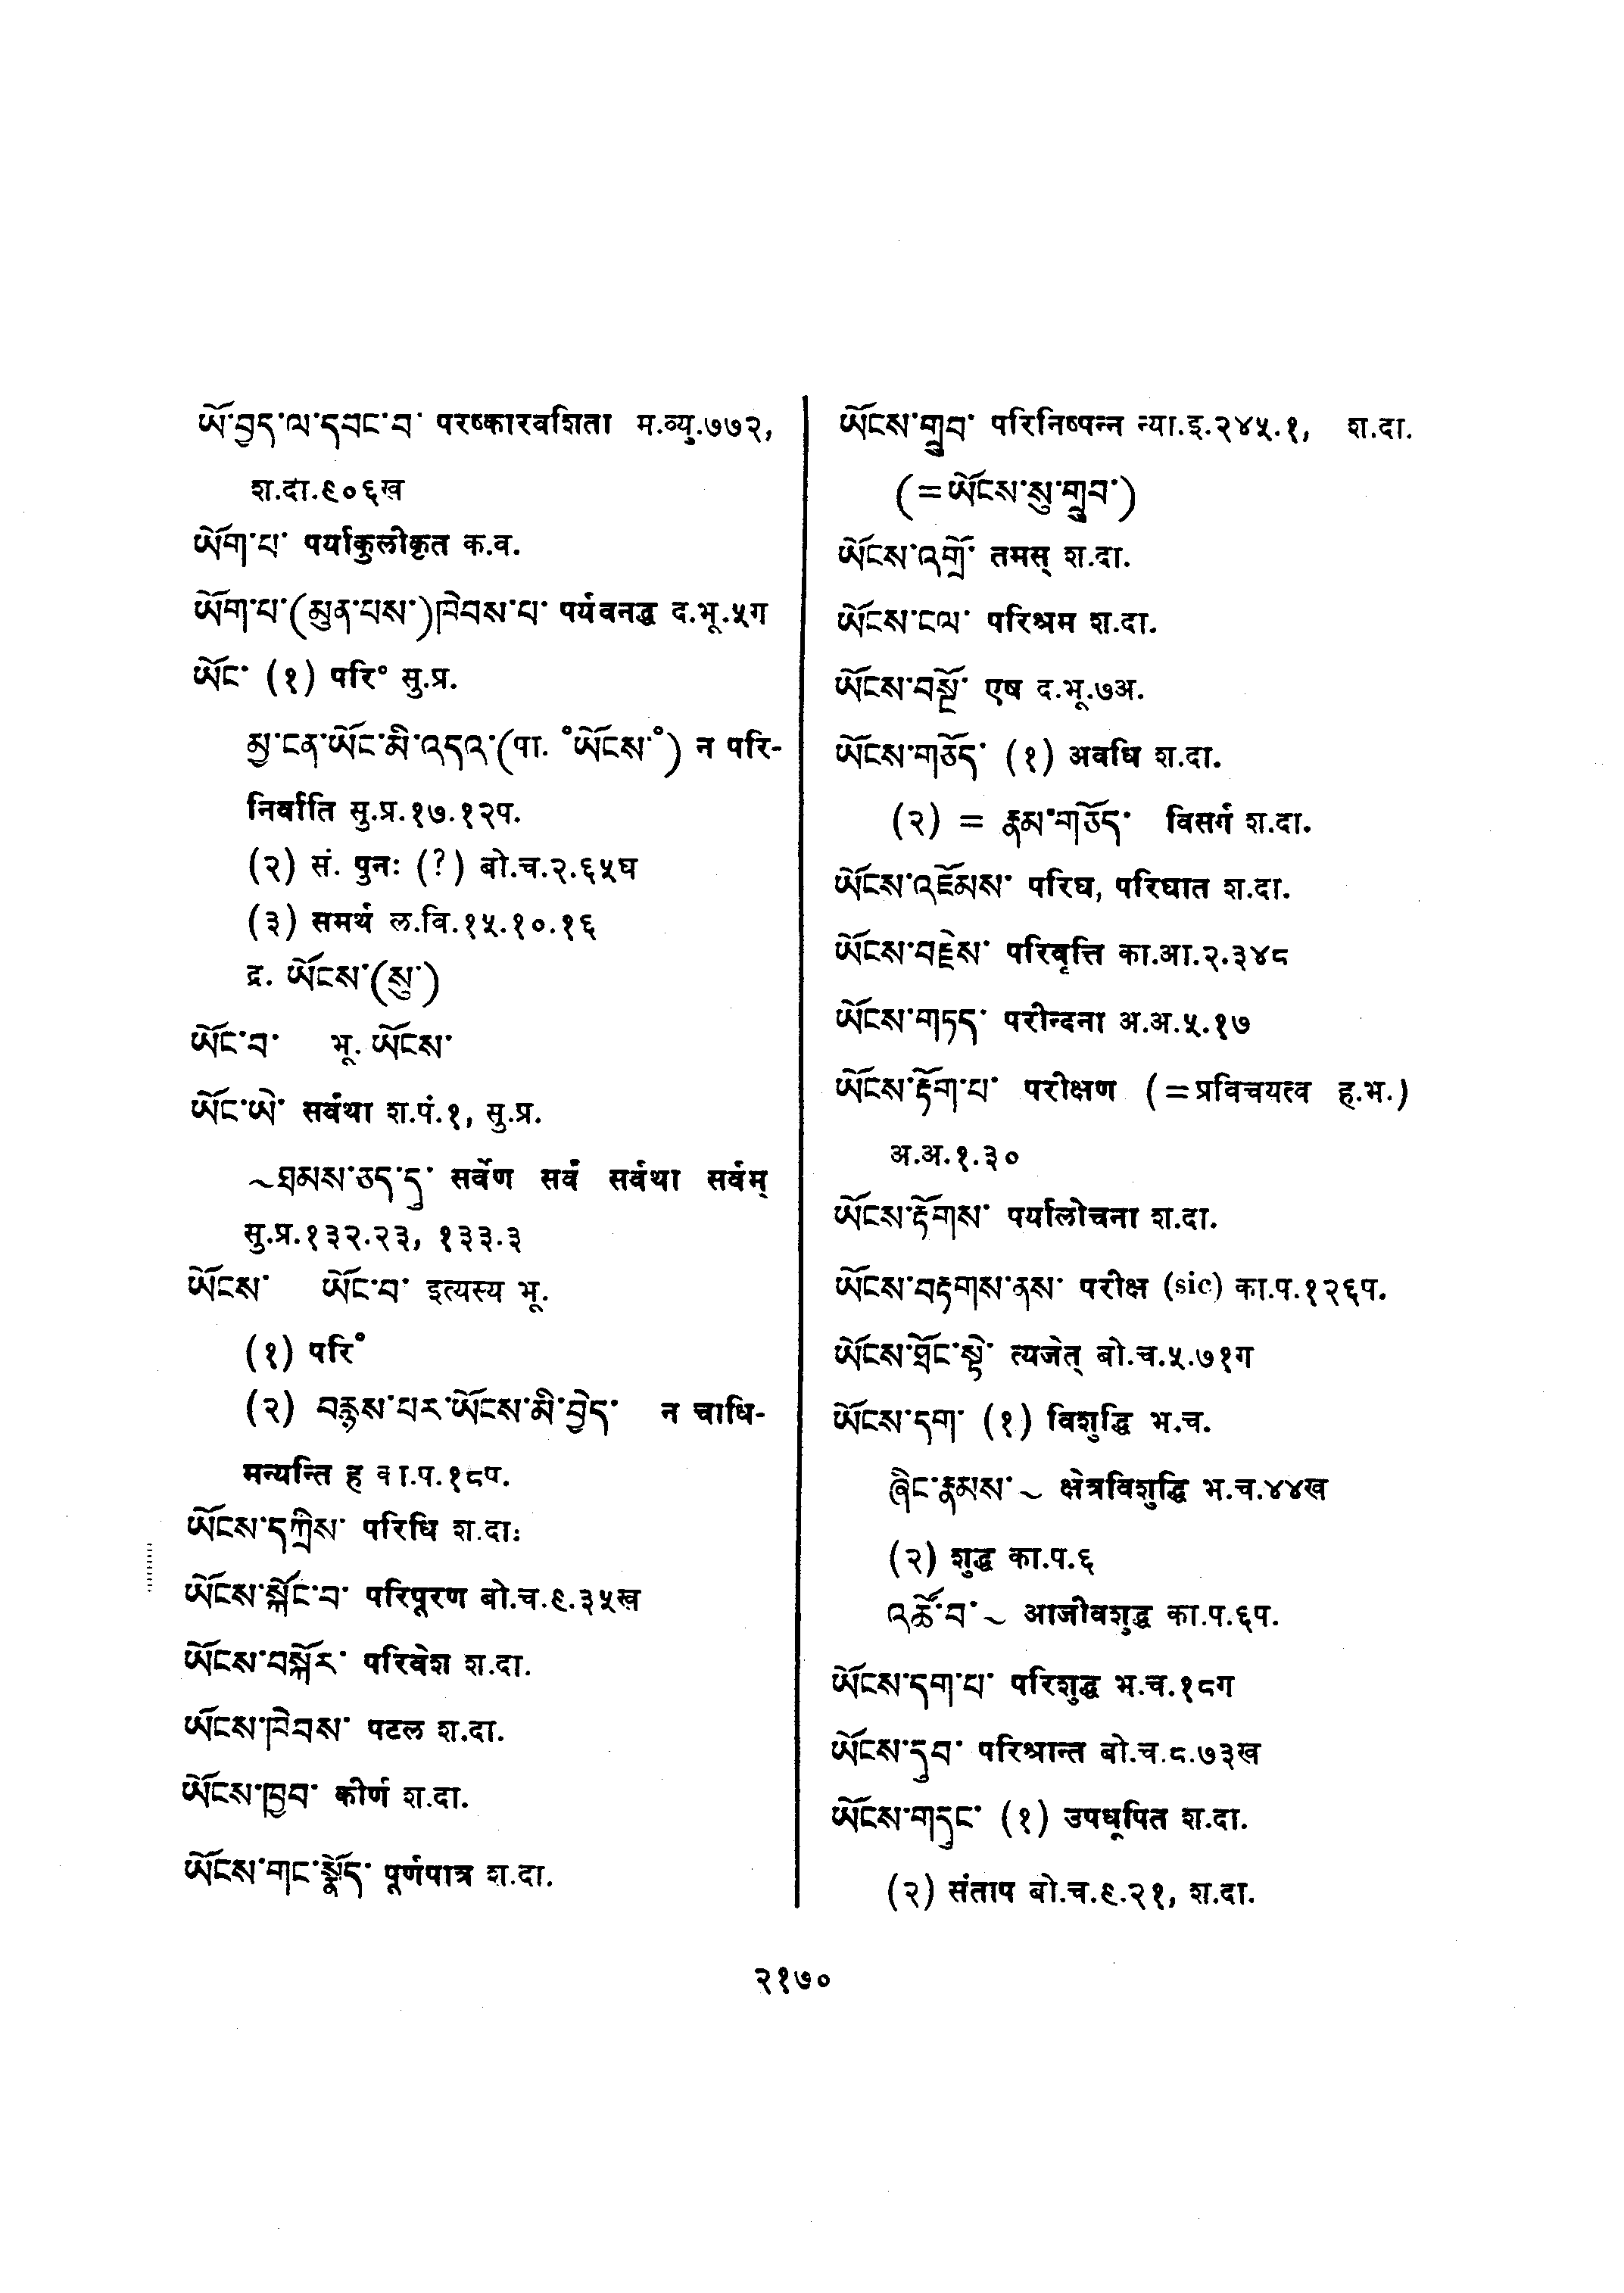 ཡོ་བྱད་ལ་དབང་བ་ परष्कारवशिता म.व्यु.७७२,
श.दा.९०६ख
ཡོག་པ་ पर्याकुलीकृत क.व.
ཡོག་པ་(མུན་པས་)ཁེབས་པ་ पर्यवनद्ध द.भू.५ग
ཡོང་ (१) परि° सु.प्र.
མྱ་ངན་ཡོང་མི་འདའ་(पा. °ཡོངས་°) न परि-
निर्वाति सु.प्र.१७.१२प.
(२) सं. पुनः (?) बो.च.२.६५घ
(३) समर्थ ल.वि.१५.१०.१६
द्र. ཡོངས་(སུ་)
ཡོང་བ་ भू. ཡོངས་
ཡོང་ཡེ་ सर्वथा श.पं.१, सु.प्र.
~ཐམས་ཅད་དུ་ सर्वेण सर्वं सर्वथा सर्वम्
सु.प्र.१३२.२३, १३३.३
ཡོངས་ ཡོང་བ་ इत्यस्य भू.
(१) परि°
(२) བརྙས་པར་ཡོངས་མི་བྱེད་ न चाधि-
मन्यन्ति ह का.प.१८प.
ཡོངས་དཀྲིས་ परिधि श.दा.
ཡོངས་སྐོང་བ་ परिपूरण बो.च.९.३५ख
ཡོངས་བསྐོར་ परिवेश श.दा.
ཡོངས་ཁེབས་ पटल श.दा.
ཡོངས་ཁྱབ་ कीर्ण श.दा.
ཡོངས་གང་སྣོད་ पूर्णपात्र श.दा.
ཡོངས་གྲུབ་ परिनिष्पन्न न्या.इ.२४५.१, श.दा.
(=ཡོངས་སུ་གྲུབ་)
ཡོངས་འགྲོ་ तमस् श.दा.
ཡོངས་ངལ་ परिश्रम श.दा.
ཡོངས་བསྔོ་ एष द.भू.७अ.
ཡོངས་གཅོད་ (१) अवधि श.दा.
(२) = རྣམ་གཅོད་ विसर्ग श.दा.
ཡོངས་འཇོམས་ परिघ, परिघात श.दा.
ཡོངས་བརྗེས་ परिवृत्ति का.आ.२.३४८
ཡོངས་གཏད་ परीन्दना अ.अ.५.१७
ཡོངས་རྟོག་པ་ परीक्षण (=प्रविचयत्व ह.भ.)
अ.अ.१.३०
ཡོངས་རྟོགས་ पर्यालोचना श.दा.
ཡོངས་བརྟགས་ནས་ परीक्ष (sic) का.प.१२६प.
ཡོངས་ཐོང་སྟེ་ त्यजेत् बो.च.५.७१ग
ཡོངས་དག་ (१) विशुद्धि भ.च.
ཞིང་རྣམས་~ क्षेत्रविशुद्धि भ.च.४४ख
(२) शुद्ध का.प.६
འཚོ་བ་~ आजीवशुद्ध का.प.६प.
ཡོངས་དག་པ་ परिशुद्ध भ.च.१८ग
ཡོངས་དུབ་ परिश्रान्त बो.च.८.७३ख
ཡོངས་གདུང་ (१) उपधूपित श.दा.
(२) संताप बो.च.९.२१, श.दा.
२१७०